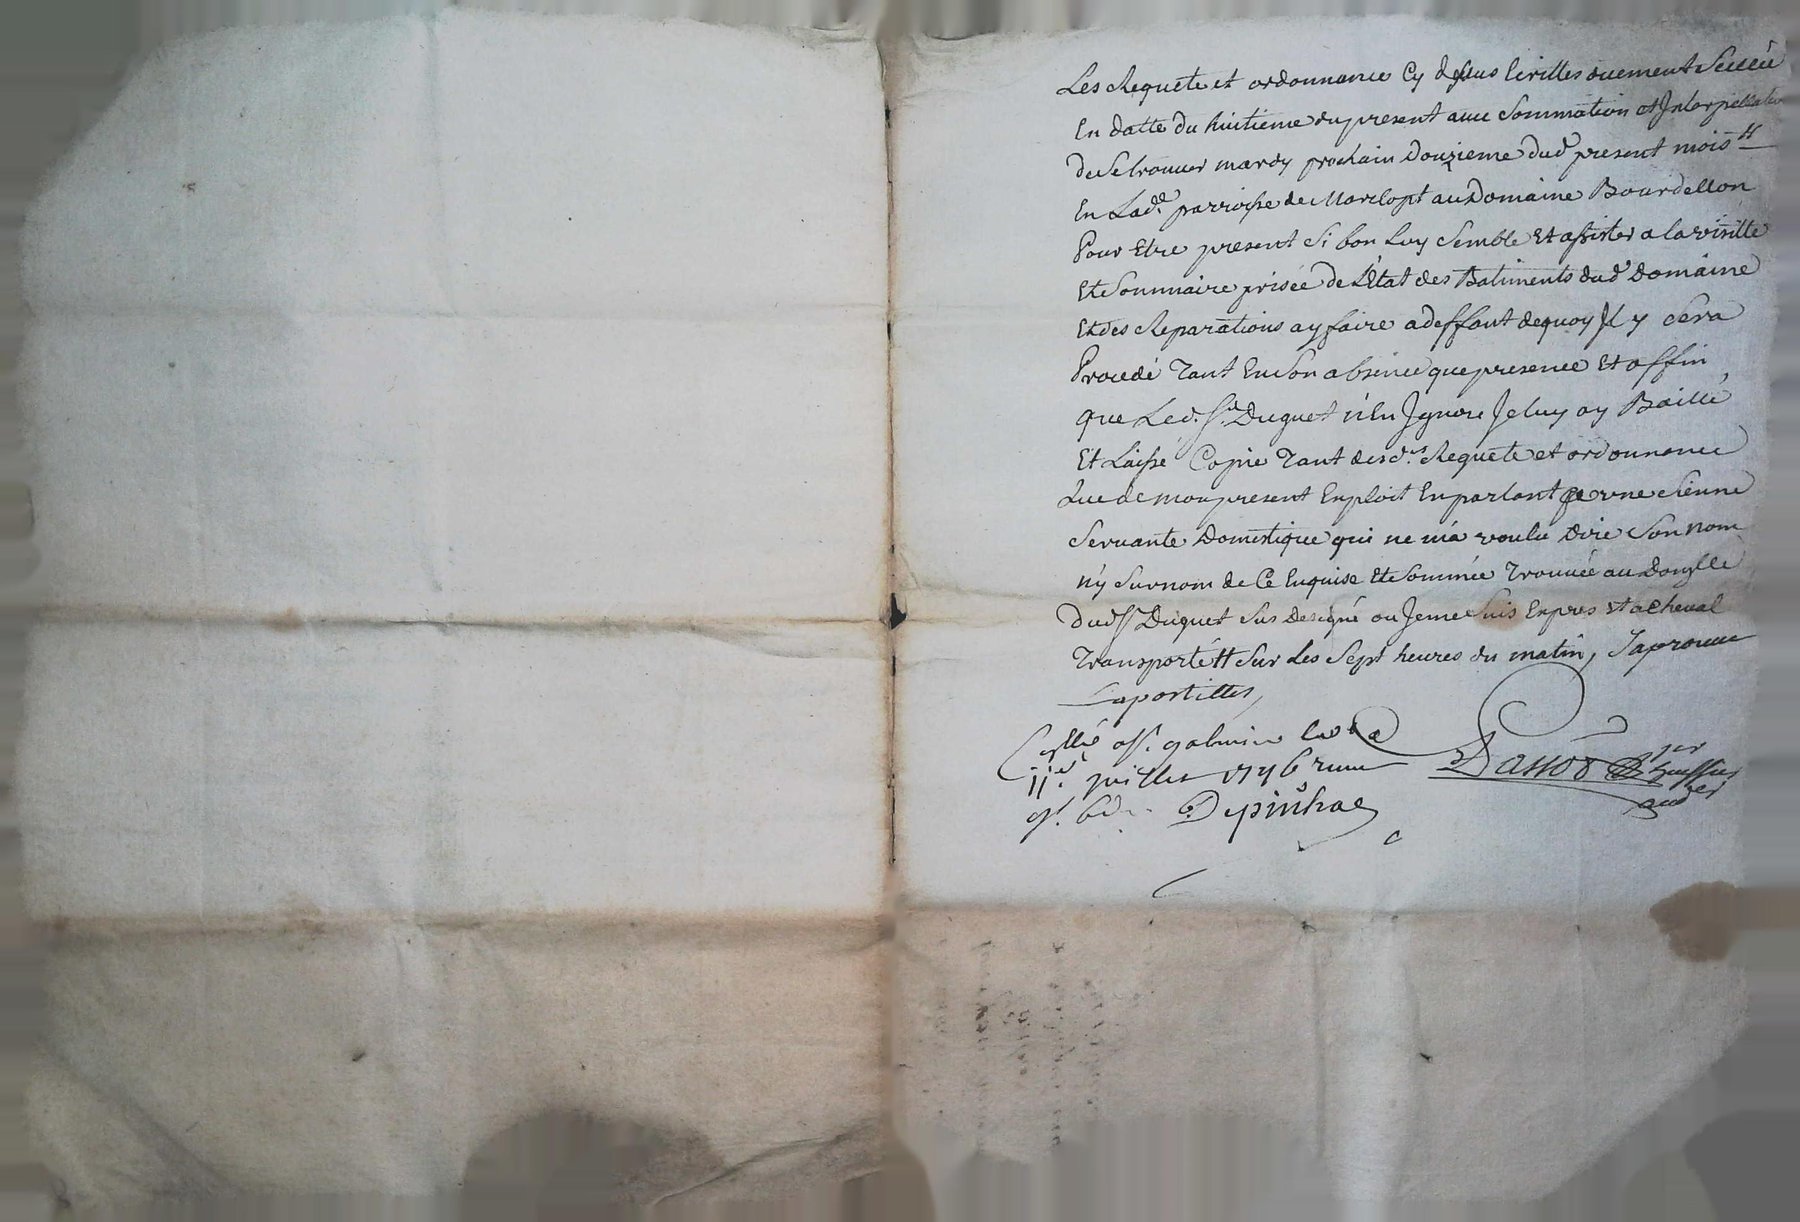 Les Requete et ordonnance Cy dessus Ecrittes duement Scellé
En datte du huitieme du present avec Sommation et Interpellation
de Se trouver mardy prochain Douzieme dud. present mois H
En Lad.e parroisse de Marclopt au Domaine Bourdellon
Pour Etre present Si bon Luy Semble Et assister a la visitte
Et Sommaire prisée de L'Etat des Batiments dud. domaine
Et des Reparations a y faire a deffaut de quoy Il y Sera
Procedé Tant En Son absence que presence Et affin
que Led. Sr. Duguet n'En Ignore Je luy ay Baillé
Et Laissé Copie Tant desd.es Requete et ordonnance
Que de mon present Exploit En parlant a une Sienne
Servante Domestique qui ne m'a voulu Dire Son nom
n'y Surnom de Ce Enquise Et Sommée Trouvée au Domylle
dud. Sr. Duguet Sus Designé ou Je me Suis Expres Et a Cheval
Transporté H Sur Les Sept heures du matin, J'aprouve
Lapostilles,
11e. juillet 1746
Depinhac
huissier